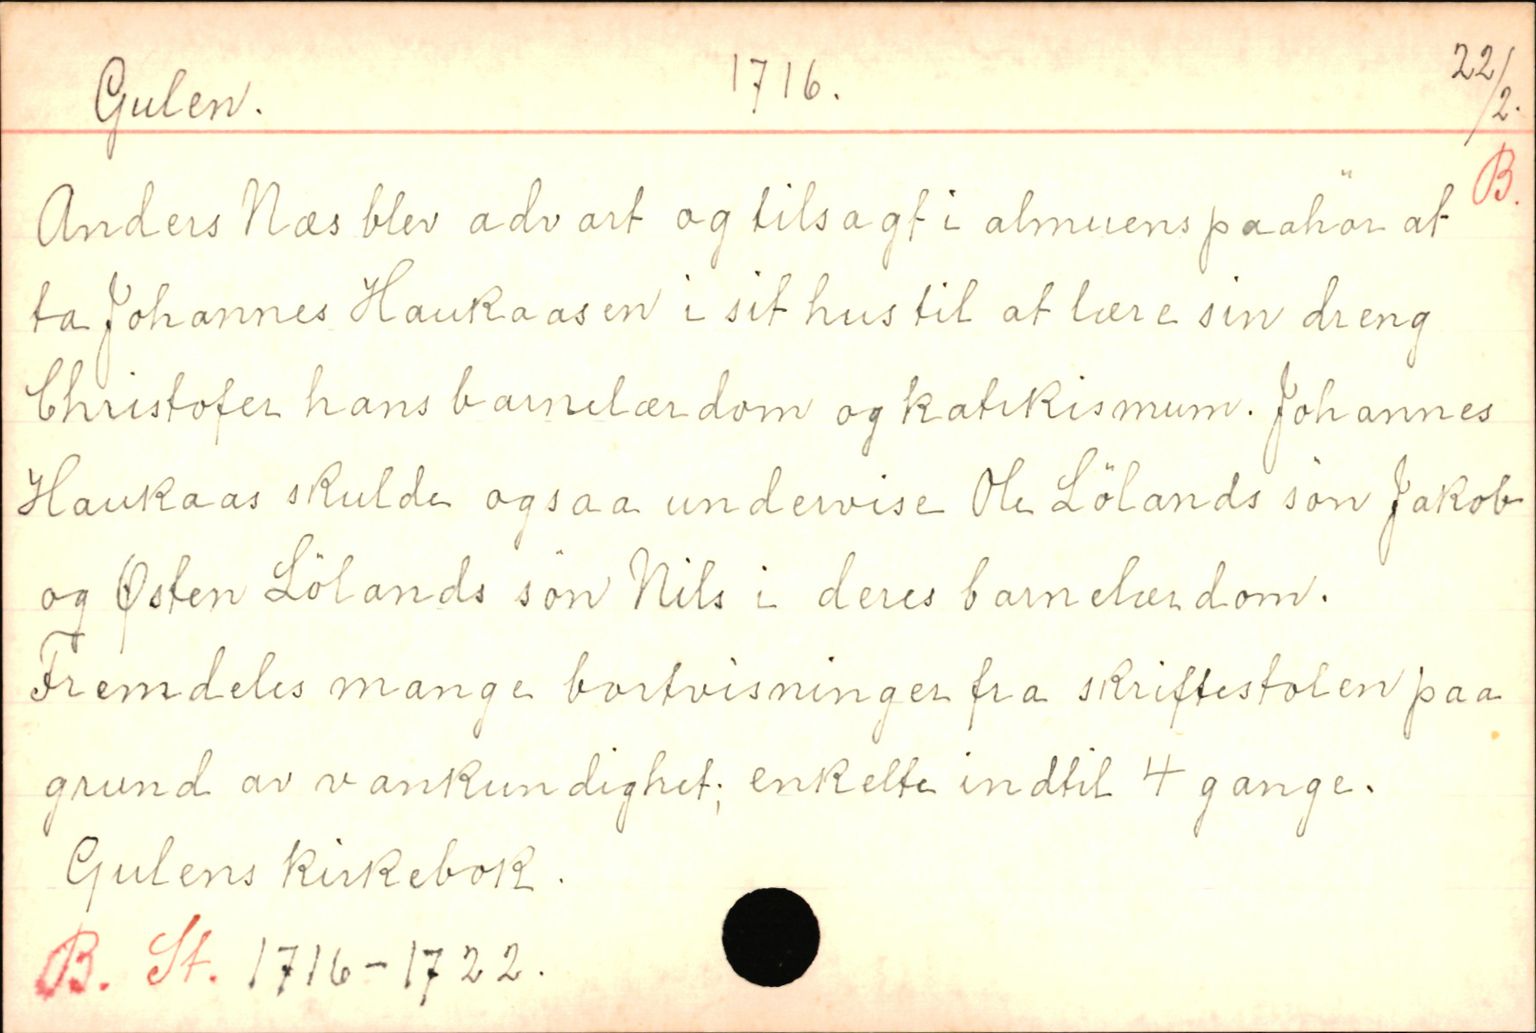 Gulen. 1716. 22/2.
B.
Anders Næs blev advart og tilsagt i almuens paahör at
ta Johannes Haukaasen i sit hus til at lære sin dreng
Christofer hans barnelærdom og katekismum. Johannes
Haukaas skulde ogsaa undervise Ole Lölands sön Jakob
og Østen Lölands sön Nils i deres barnelærdom.
Fremdeles mange bortvisninger fra skriftestolen paa
grund av vankundighet; enkelte indtil 4 gange.
Gulens kirkebok.
B. St. 1716-1722.